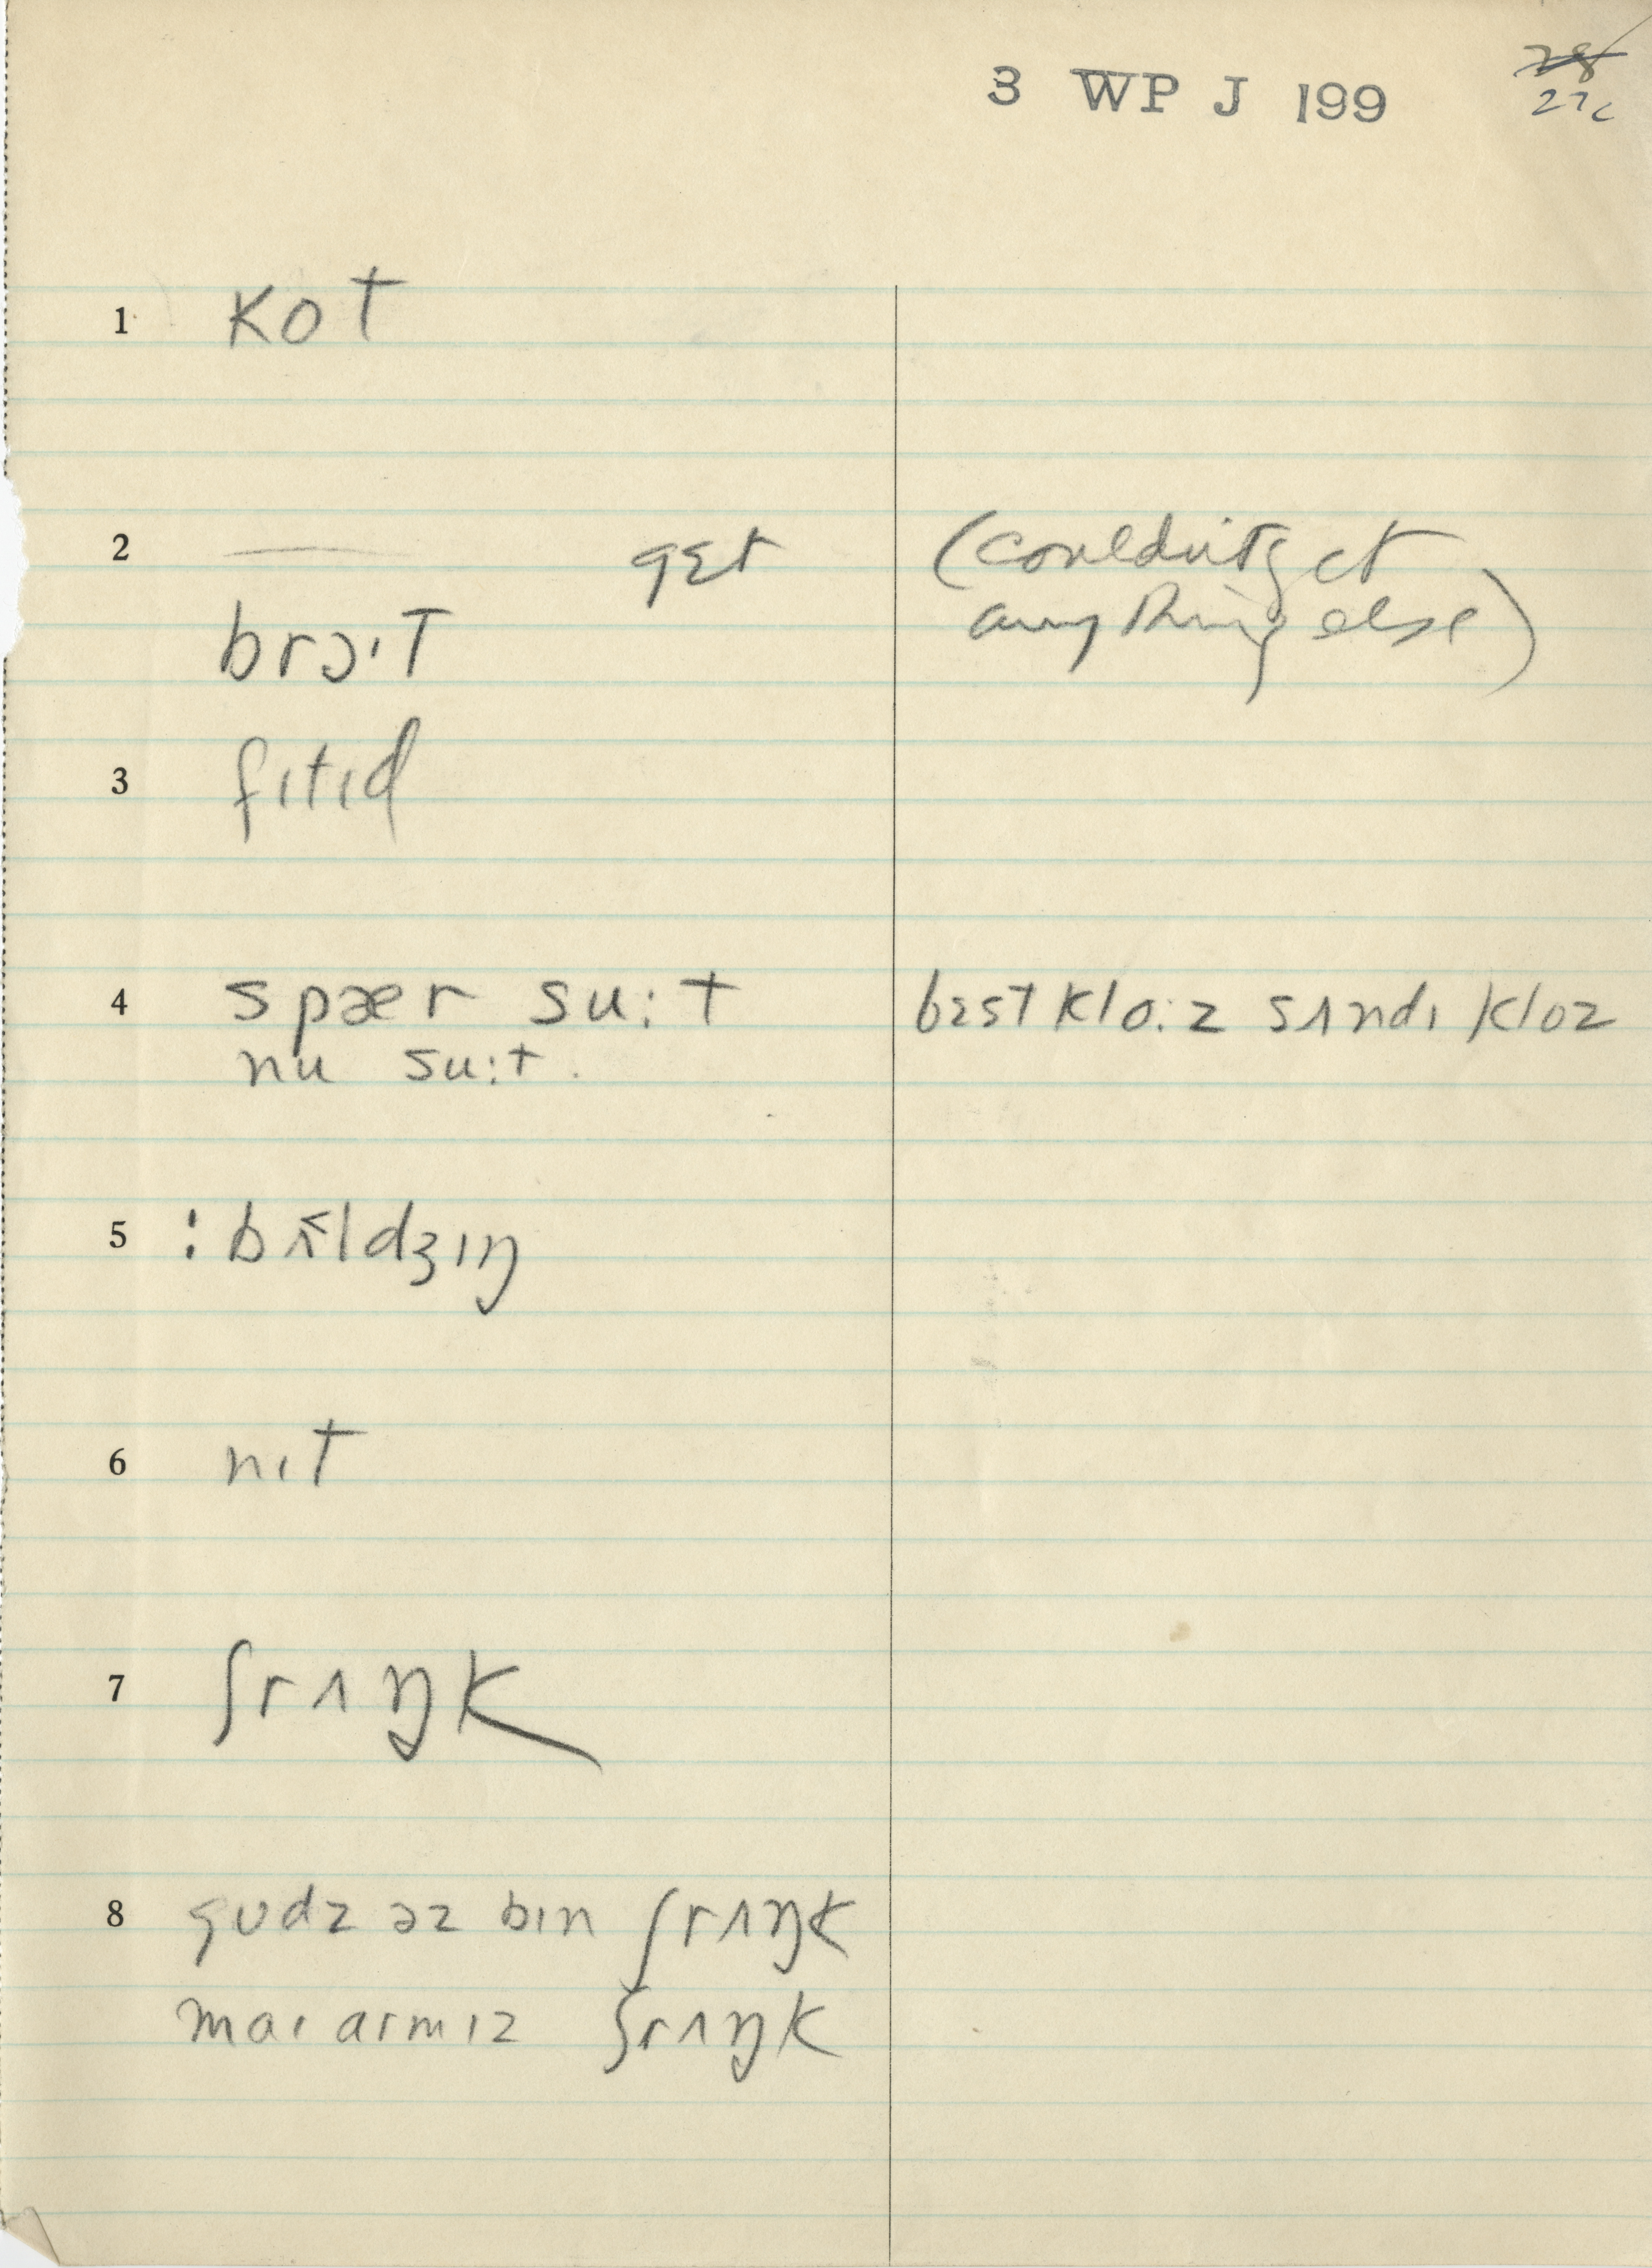 3 WP J 199
28
27c
1 kot
2 — gɛt (couldn't get
anything else)
brɔ·t
3 fɪtɪd
4 spær su:t bɛst klo:z sʌndɪ kloz
nu su:t.
5 : bʌ̆ldʒɪŋ
6 nɪt
7 ʃrʌŋk
8 gudz əz bɪn ʃrʌŋk
maɪ armɪz ʃrʌŋk